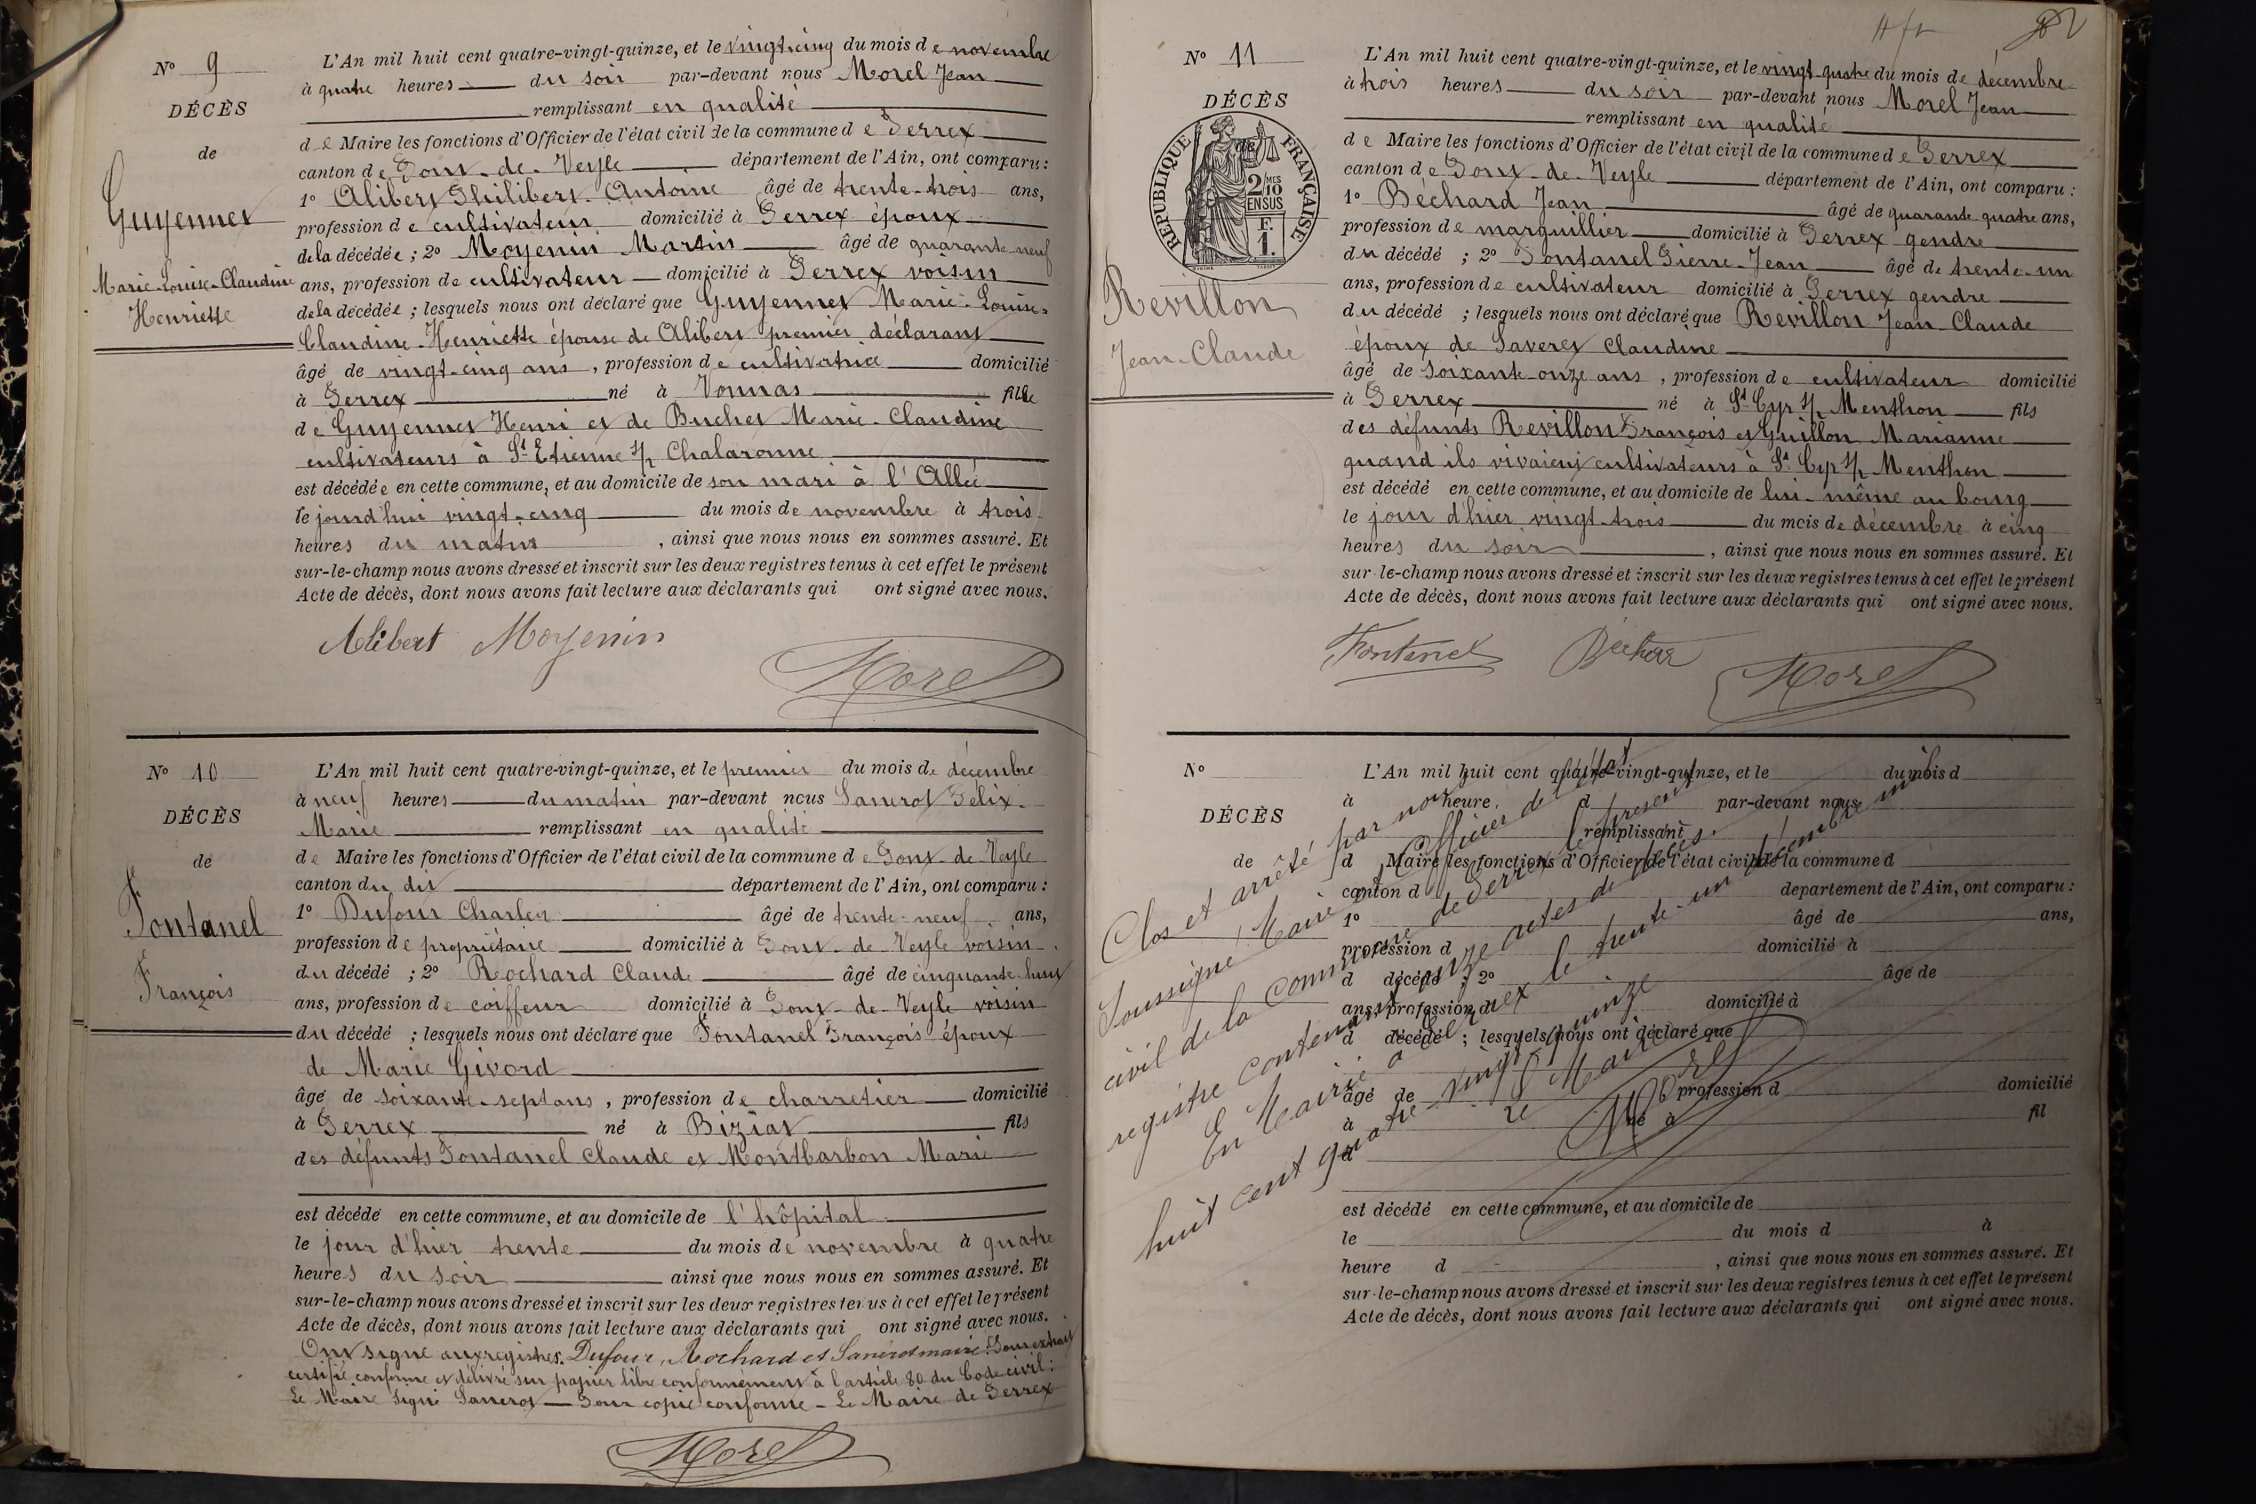 N° 9
DÉCÈS
de
Guyennet
Marie-Louise-Claudine
Henriette
L'An mil huit cent quatre-vingt-quinze, et le vingt-cinq du mois de novembre
à quatre heures du soir par-devant nous Morel Jean
remplissant en qualité
de Maire les fonctions d'Officier de l'état civil de la commune de Perrex
canton de Pont-de-Veyle département de l'Ain, ont comparu :
1° Alibert Philibert-Antoine âgé de trente-trois ans,
profession de cultivateur domicilié à Perrex époux
de la décédée ; 2° Moyenin Martin âgé de quarante-neuf
ans, profession de cultivateur domicilié à Perrex voisin
de la décédée ; lesquels nous ont déclaré que Guyennet Marie-Louise-
Claudine-Henriette épouse de Alibert premier déclarant
âgé de vingt-cinq ans, profession de cultivatrice domicilié
à Perrex né à Vonnas fille
de Guyennet Henri et de Buchet Marie-Claudine
cultivateurs à St Etienne s/ Chalaronne
est décédée en cette commune, et au domicile de son mari à l'Allée
le jourd'hui vingt-cinq du mois de novembre à trois
heures du matin, ainsi que nous nous en sommes assuré. Et
sur-le-champ nous avons dressé et inscrit sur les deux registres tenus à cet effet le présent
Acte de décès, dont nous avons fait lecture aux déclarants qui ont signé avec nous.
Alibert Moyenin
Morel
N° 10
DÉCÈS
de
Fontanel
François
L'An mil huit cent quatre-vingt-quinze, et le premier du mois de décembre
à neuf heures du matin par-devant nous Sanerot Félix-
Marie remplissant en qualité
de Maire les fonctions d'Officier de l'état civil de la commune de Pont-de-Veyle
canton du dit département de l'Ain, ont comparu :
1° Dufour Charles âgé de trente-neuf ans,
profession de propriétaire domicilié à Pont-de-Veyle voisin
du décédé ; 2° Rochard Claude âgé de cinquante-huit
ans, profession de coiffeur domicilié à Pont-de-Veyle voisin
du décédé ; lesquels nous ont déclaré que Fontanel François époux
de Marie Givord
âgé de soixante-sept ans, profession de charretier domicilié
à Perrex né à Biziat fils
des défunts Fontanel Claude et Montbarbon Marie
est décédé en cette commune, et au domicile de l'hôpital
le jour d'hier trente du mois de novembre à quatre
heures du soir ainsi que nous nous en sommes assuré. Et
sur-le-champ nous avons dressé et inscrit sur les deux registres tenus à cet effet le présent
Acte de décès, dont nous avons fait lecture aux déclarants qui ont signé avec nous.
Ont signé aux registres. Dufour, Rochard et Sanerot maire. Pour extrait
certifié conforme et délivré sur papier libre conformément à l'article 80 du Code civil :
Le Maire signé Sanerot — Pour copie conforme - Le Maire de Perrex
Morel
N° 11
DÉCÈS
de
RÉPUBLIQUE FRANÇAISE
2/10 MES
EN SUS
F.
1.
Revillon
Jean-Claude
L'An mil huit cent quatre-vingt-quinze, et le vingt-quatre du mois de décembre
à trois heures du soir par-devant nous Morel Jean
remplissant en qualité
de Maire les fonctions d'Officier de l'état civil de la commune de Perrex
canton de Pont-de-Veyle département de l'Ain, ont comparu :
1° Béchard Jean âgé de quarante-quatre ans,
profession de marguillier domicilié à Perrex gendre
du décédé ; 2° Fontanel Pierre-Jean âgé de trente-un
ans, profession de cultivateur domicilié à Perrex gendre
du décédé ; lesquels nous ont déclaré que Revillon Jean-Claude
époux de Laveret Claudine
âgé de soixante-onze ans, profession de cultivateur domicilié
à Perrex né à St Cyr s/ Menthon fils
des défunts Revillon François et Guillon Marianne
quand ils vivaient cultivateurs à St Cyr s/ Menthon
est décédé en cette commune, et au domicile de lui-même au bourg
le jour d'hier vingt-trois du mois de décembre à cinq
heures du soir, ainsi que nous nous en sommes assuré. Et
sur-le-champ nous avons dressé et inscrit sur les deux registres tenus à cet effet le présent
Acte de décès, dont nous avons fait lecture aux déclarants qui ont signé avec nous.
Fontanel Béchard
Morel
N°
DÉCÈS
de
L'An mil huit cent quatre-vingt-quinze, et le du mois d
à heure d par-devant nous
remplissant
d Maire les fonctions d'Officier de l'état civil de la commune d
canton d département de l'Ain, ont comparu :
1° âgé de ans,
profession d domicilié à
d décédé ; 2° âgé de
ans, profession d domicilié à
d décédé ; lesquels nous ont déclaré que
âgé de profession d domicilié
à né à fil
d
est décédé en cette commune, et au domicile de
le du mois d à
heure d , ainsi que nous nous en sommes assuré. Et
sur-le-champ nous avons dressé et inscrit sur les deux registres tenus à cet effet le présent
Acte de décès, dont nous avons fait lecture aux déclarants qui ont signé avec nous.
Clos et arrêté par nous
soussigné, Maire et Officier de l'état
civil de la commune de Perrex le présent
registre contenant onze actes de décès.
En Mairie à Perrex le trente-un décembre mil
huit cent quatre-vingt-quinze
Le Maire
Morel